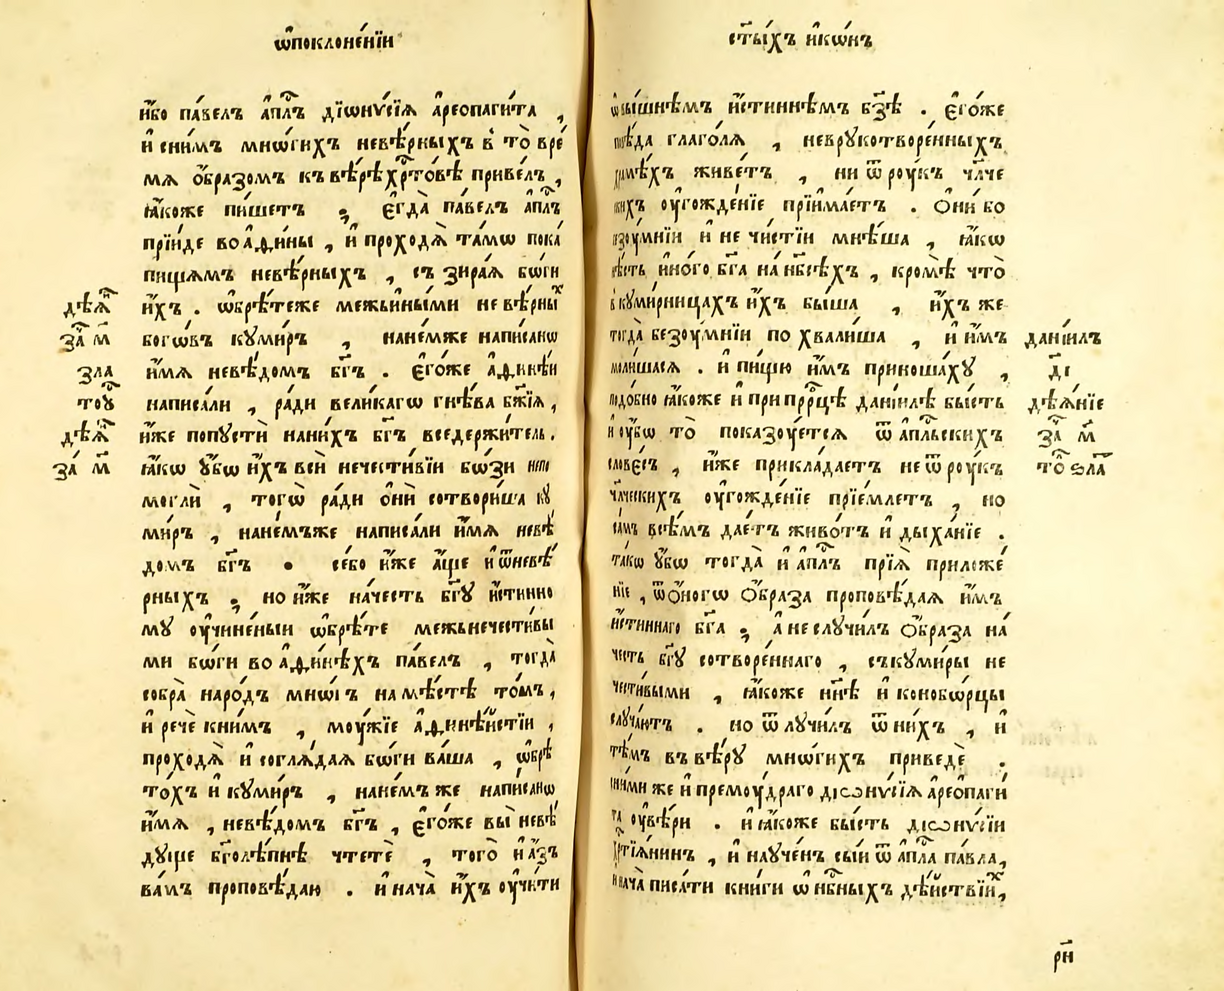 ѡ҆поклоне́нїи
и҆́бо па́велъ а҆пⷭ҇лъ дїѡнѵ́сїѧ а҆реопаги́та ,
и҆ сни́мъ мнѡ́гихъ невѣ́рныхъ в̾ то̀ вре́
мѧ ѻ҆́бразомъ къ вѣ́рѣ хрⷭ҇то́вѣ приве́лъ ,
ꙗ҆́коже пи́шетъ ; є҆гда̀ па́велъ а҆пⷭ҇лъ
прїи́де во а҆ѳи́ны , и҆ проходѧ̀ та́мѡ пока́
пищѧмъ невѣ́рныхъ , съ зира́ѧ бѡ́ги
дѣѧ҃
и҆́хъ . ѡ҆брѣ́теже межьи҆́ными невѣ́рныⷯ
за҃ м҃
богѡ́въ куми́ръ , нане́мже написа́нѡ
зла
и҆́мѧ невѣ́домъ бг҃ъ . є҆го́же а҆ѳинѣ́и
тоꙋ
написа́ли , ра́ди вели́кагѡ гнѣ́ва бж҃їѧ ,
дѣѧ҃
и҆́же попусти̑ нани́хъ бг҃ъ вседержи́тель .
за҃ м҃
ꙗ҆́кѡ у҆́бѡ и҆́хъ всѝ нечести́вїи бѡ́зи
могли̑ , тогѡ̀ ра́ди ѻ҆ни̑ сотвори́ша ку
ми́ръ , нане́мъже написа́ли и҆́мѧ невѣ́
домъ бг҃ъ . се́бо и҆́же а҆́ще и҆ ѿневѣ́
рныхъ ; но и҆́же на́честь бг҃у и҆́стинно
му оу҆чине́ныи ѡ҆брѣ́те межьнечести́вы
ми бѡ́ги во а҆ѳинѣ́хъ па́велъ , тогда̀
собра̀ наро́дъ мнѡ́гъ на мѣ́стѣ то́мъ ,
и҆ рече̑ кни́мъ , моу́жїе а҆ѳинѣ́йстїи ,
проходѧ̀ и҆ соглѧ́даѧ бѡ́ги ва́ша , ѡ҆брѣ́
то́хъ и҆ куми́ръ , нане́мъже написа́нѡ
и҆́мѧ , невѣ́домъ бг҃ъ , є҆го́же вы̀ невѣ́
дуще бг҃олѣ́пнѣ чтетѐ , того̀ и҆ а҆́зъ
ва́мъ проповѣ́даю . и҆ нача̀ и҆́хъ оу҆чи́ти
ст҃ы́хъ и҆кѡ́нъ
ѡ҆ вы́шнѣмъ и҆́стиннѣмъ бз҃ѣ . є҆го́же
глаго́лѧ , неврукотворе́нныхъ
живе́тъ , ни ѿ роу́къ чл҃че
оу҆гожде́нїе прїима́етъ . ѻ҆ни́ бо
и҆ не чи́стїи мнѣ́ша , ꙗ҆́кѡ
нѣ́сть и҆но́го бг҃а на нб҃сѣ́хъ , кромѣ̀ что̀
в куми́рницахъ и҆́хъ бы́ша , и҆́хъ же
тогда̀ безоу́мнїи по хвали́ша , и҆ и҆̀мъ
данїи́лъ
моли́шасѧ . и҆ пи́щю и҆̀мъ приноша́ху ,
дı҃
подо́бно ꙗ҆́коже и҆ припрⷪ҇цѣ данїи́лѣ бы́сть
дѣѧ́нїе
и҆ оу҆́бѡ то̀ показоу́етсѧ ѿ а҆пⷭ҇льскихъ
за҃ м҃
слове́съ , и҆́же прикла́даетъ не ѿ роу́къ
то҃ ѕла҃
чл҃ческихъ оу҆гожде́нїе прїе́млетъ , но
са́мъ всѣ́мъ дае́тъ живо́тъ и҆ дыха́нїе .
та́кѡ у҆́бѡ тогда̀ и҆ а҆пⷭ҇лъ прїѧ̀ приложе́
нїе , ѿѻ҆́ногѡ ѻ҆́браза проповѣ́даѧ и҆̀мъ
и҆́стиннаго бг҃а ; а҆ не случи́лъ ѻ҆́браза на́
че́сть бг҃у сотворе́ннаго , съкуми́ры не
чести́выми , ꙗ҆́коже нн҃ѣ и҆ конобѡ́рцы
случа́ютъ . но ѿ лучи́лъ ѿ ни́хъ , и҆
тѣ́мъ въ вѣ́ру мнѡ́гихъ приведѐ .
сни́ми же и҆ премоу́драго дїѡнѵ́сїѧ а҆реопаги́
та оу҆вѣ́ри . и҆ ꙗ҆́коже бы́сть дїѡнѵ́сїи
хрⷭ҇тїѧ́нинъ , и҆ нау́че́нъ сы́и ѿ а҆пⷭ҇ла па́вла ,
и҆ нача̀ писа́ти кни́ги ѡ҆ нб҃ныхъ дѣ́йствїиⷯ ,
рн҃